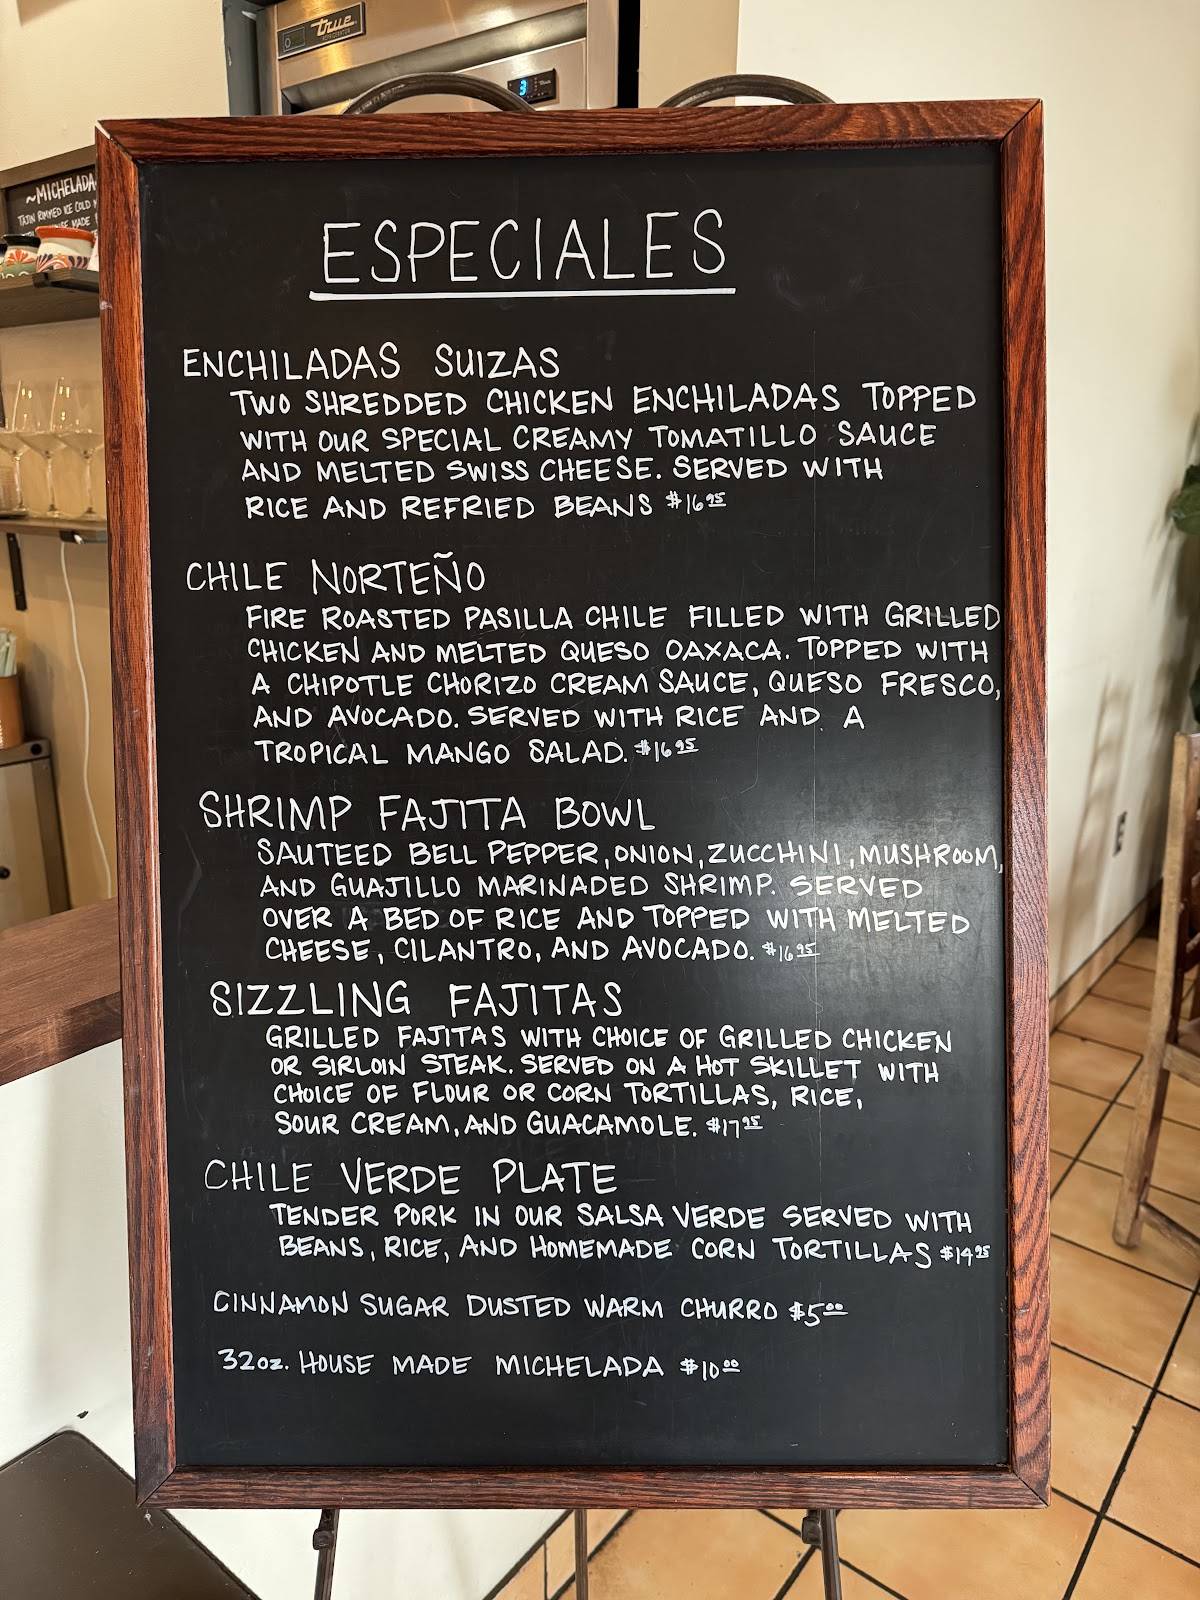 true
REFRIGERATOR
3
~MICHELADA
TAJIN RIMMED ICE COLD
MADE
ESPECIALES
ENCHILADAS SUIZAS
TWO SHREDDED CHICKEN ENCHILADAS TOPPED
WITH OUR SPECIAL CREAMY TOMATILLO SAUCE
AND MELTED SWISS CHEESE. SERVED WITH
RICE AND REFRIED BEANS $16 95
CHILE NORTEÑO
FIRE ROASTED PASILLA CHILE FILLED WITH GRILLED
CHICKEN AND MELTED QUESO OAXACA. TOPPED WITH
A CHIPOTLE CHORIZO CREAM SAUCE, QUESO FRESCO,
AND AVOCADO. SERVED WITH RICE AND A
TROPICAL MANGO SALAD. $16 95
SHRIMP FAJITA BOWL
SAUTEED BELL PEPPER, ONION, ZUCCHINI, MUSHROOM,
AND GUAJILLO MARINADED SHRIMP. SERVED
OVER A BED OF RICE AND TOPPED WITH MELTED
CHEESE, CILANTRO, AND AVOCADO. $16 95
SIZZLING FAJITAS
GRILLED FAJITAS WITH CHOICE OF GRILLED CHICKEN
OR SIRLOIN STEAK. SERVED ON A HOT SKILLET WITH
CHOICE OF FLOUR OR CORN TORTILLAS, RICE,
SOUR CREAM, AND GUACAMOLE. $17 95
CHILE VERDE PLATE
TENDER PORK IN OUR SALSA VERDE SERVED WITH
BEANS, RICE, AND HOMEMADE CORN TORTILLAS $14 95
CINNAMON SUGAR DUSTED WARM CHURRO $5 00
32oz. HOUSE MADE MICHELADA $10 00